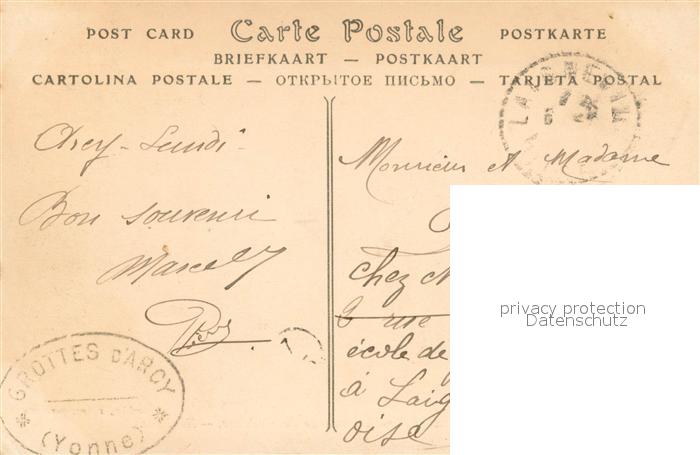 POST CARD Carte Postale POSTKARTE
BRIEFKAART — POSTKAART
CARTOLINA POSTALE — ОТКРЫТОЕ ПИСЬМО — TARJETA POSTAL
Arcy-Lundi-
Bon souvenir
Marcel
GROTTES D'ARCY
(Yonne)
Monsieur et Madame
chez
rue
école de
à
oise
privacy protection
Datenschutz